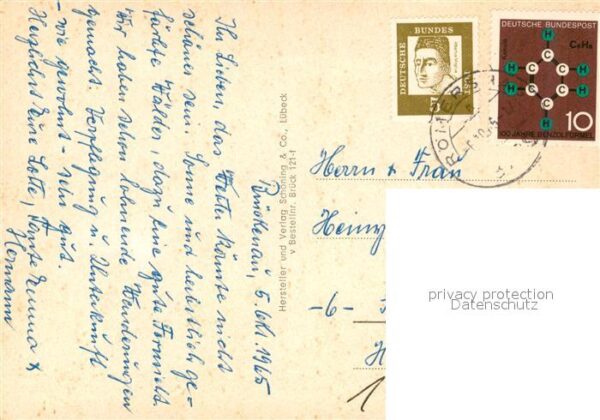 Brückenau, 5. Okt. 1965
Ihr Lieben, das Wetter könnte nicht
schöner sein. Sonne und herbstlich ge-
färbte Wälder dazu eine gute Fernsicht.
Wir haben schon lohnende Wanderungen
gemacht. Verpflegung u. Unterkunft
- wie gewohnt - sehr gut.
Herzlichst Eure Lotte, Tante Emma &
Hermann
Hersteller und Verlag Schöning & Co., Lübeck
Bestellnr. Brück 121-f
DEUTSCHE BUNDESPOST
5
DEUTSCHE BUNDESPOST
C₆H₆
H
H
H
H
H
H
10
100 JAHRE BENZOLFORMEL
Herrn u. Frau
Heinz
-6-
privacy protection
Datenschutz